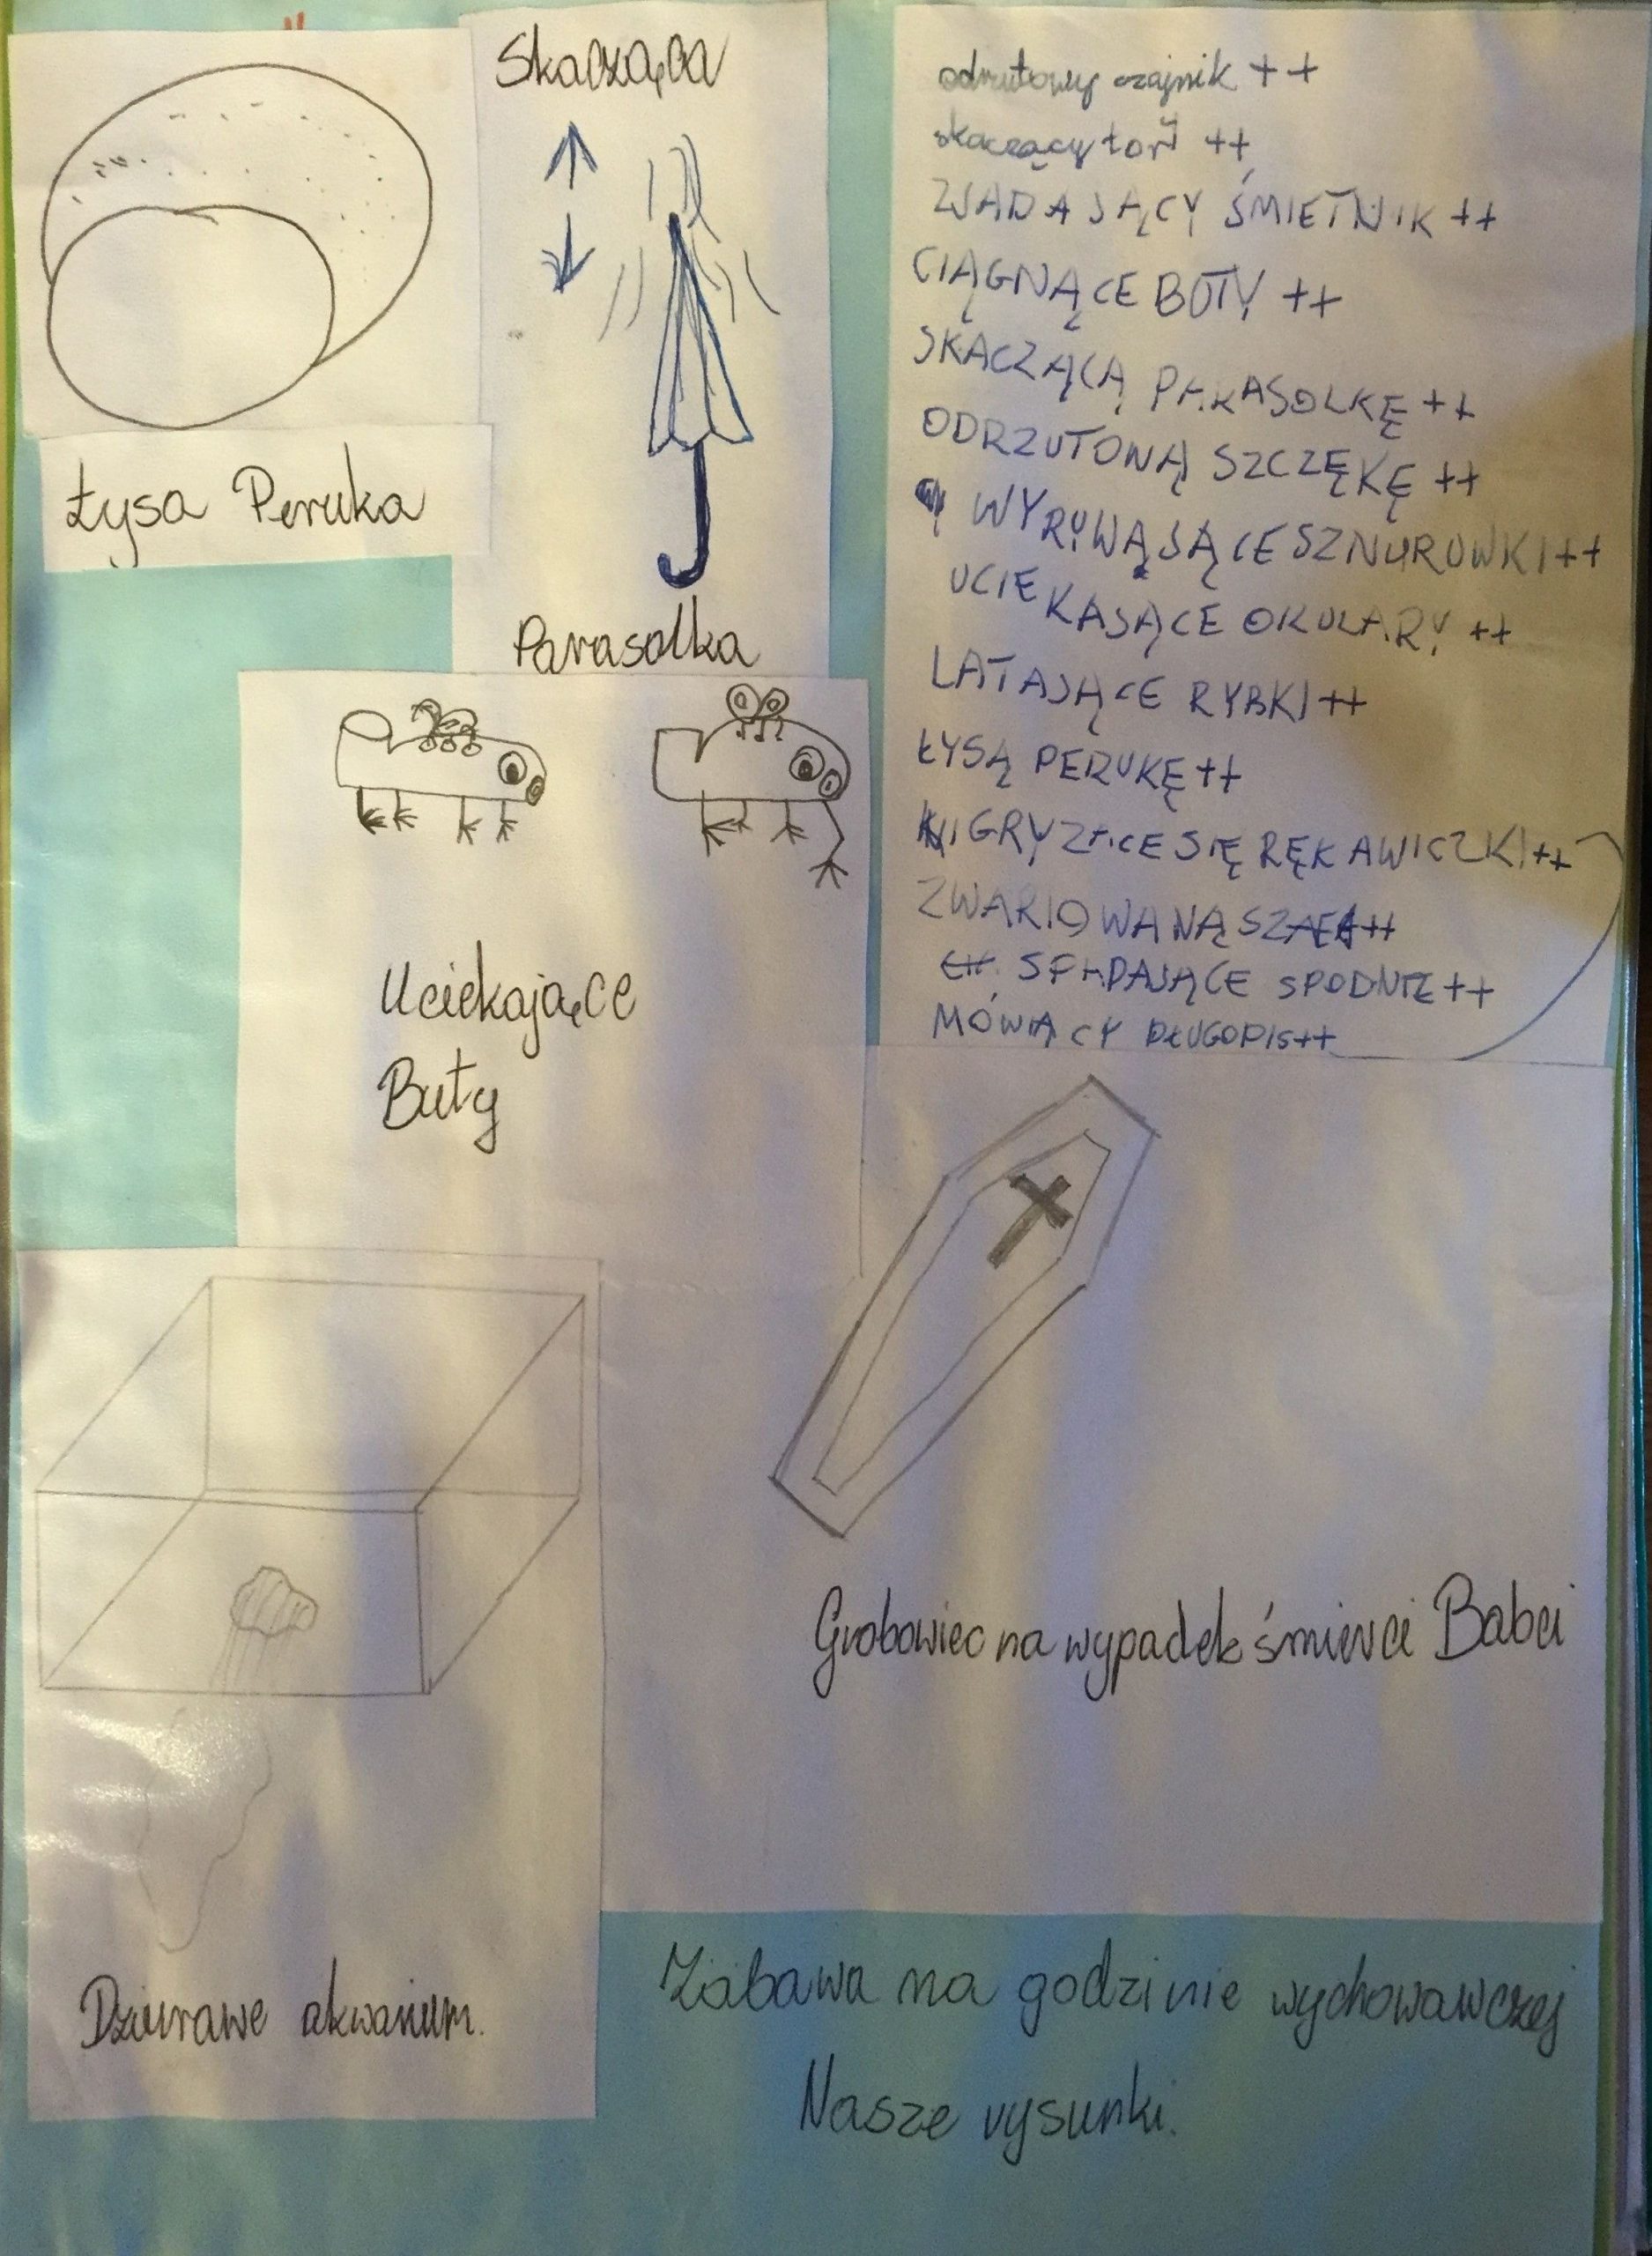 Skacząca
Parasolka
Łysa Peruka
Uciekające
Buty
odrzutowy czajnik ++
skaczący tort ++
ZJADAJĄCY ŚMIETNIK ++
CIĄGNĄCE BUTY ++
SKACZĄCĄ PARASOLKĘ ++
ODRZUTONĄ SZCZĘKĘ ++
WYRYWAJĄCE SZNURUWKI ++
UCIEKAJĄCE OKULARY ++
LATAJĄCE RYBKI ++
ŁYSĄ PERUKĘ ++
GRYZĄCE SIĘ RĘKAWICZKI ++
ZWARIOWANĄ ++
SPADAJĄCE SPODNIE ++
MÓWIĄCY DŁUGOPIS ++
Grobowiec na wypadek śmierci Babci
Dziurawe akwarium.
Zabawa na godzinie wychowawczej
Nasze rysunki.